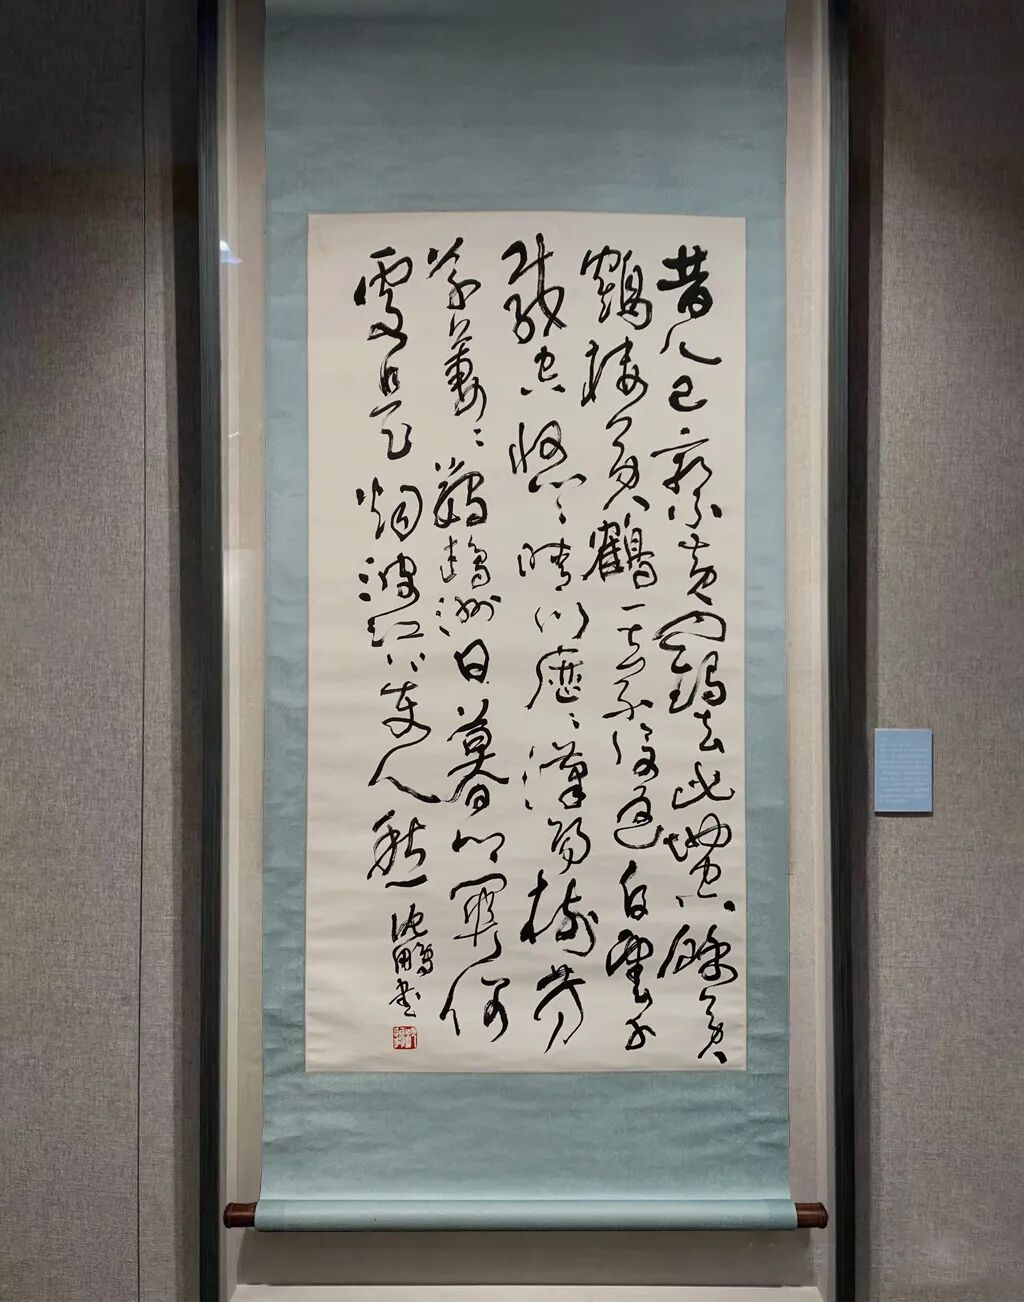 昔人已乘黄鶴去此地空餘黄
鶴樓黄鶴一去不復返白雲千
載空悠々晴川歷々漢陽樹芳
草萋々鸚鵡洲日暮鄉關何
處是烟波江上使人愁
沈鵬書